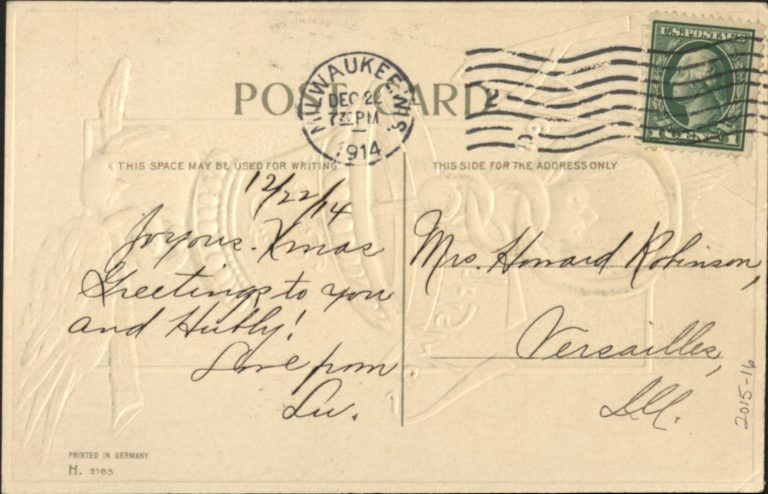 U.S. POSTAGE
1 CENT 1
MILWAUKEE, WIS.
DEC 22
7 30 PM
1914
POST CARD
THIS SPACE MAY BE USED FOR WRITING
THIS SIDE FOR THE ADDRESS ONLY
12/22/14
Joyous Xmas
Greetings to you
and Hubby!
Love from
Lu.
Mrs. Howard Robinson,
Versailles,
Ill.
2015-16
PRINTED IN GERMANY.
H. 5165